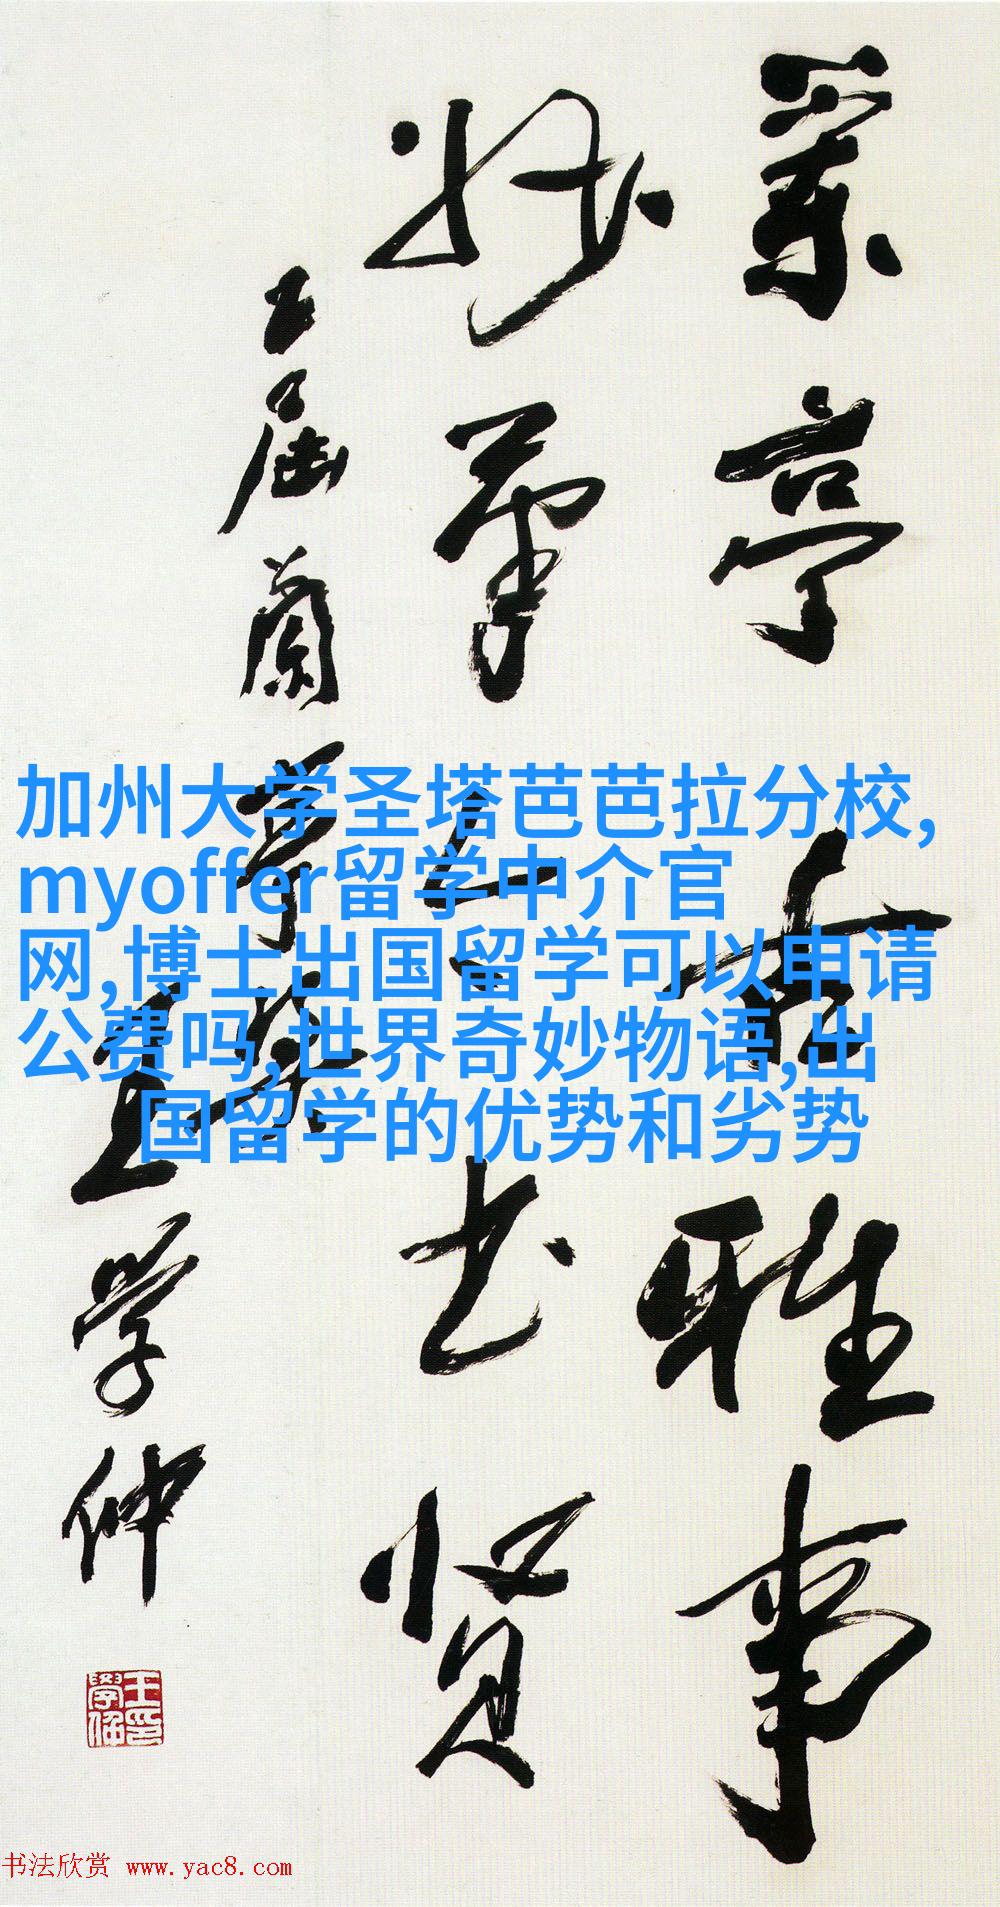 蘭亭有雅事
筆书贤
五届蘭亭奖
王学仲
加州大学圣塔芭芭拉分校,
myoffer留学中介官
网,博士出国留学可以申请
公费吗,世界奇妙物语,出
国留学的优势和劣势
书法欣赏 www.yac8.com